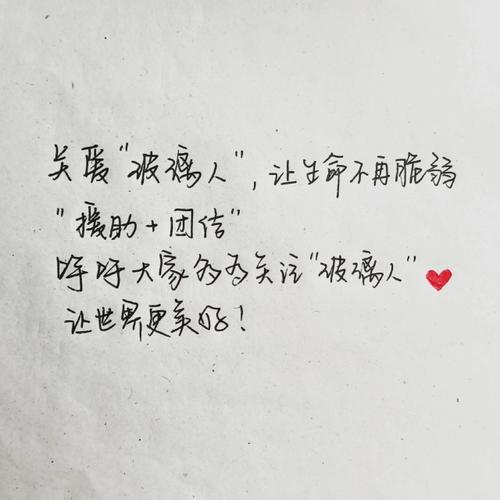 关爱“玻璃人”,让生命不再脆弱
“援助+团结”
呼吁大家多多关注“玻璃人”
让世界更美好!